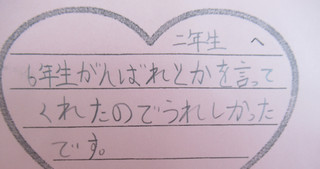 二年生 へ
6年生がんばれとかを言って
くれたのでうれしかった
です。